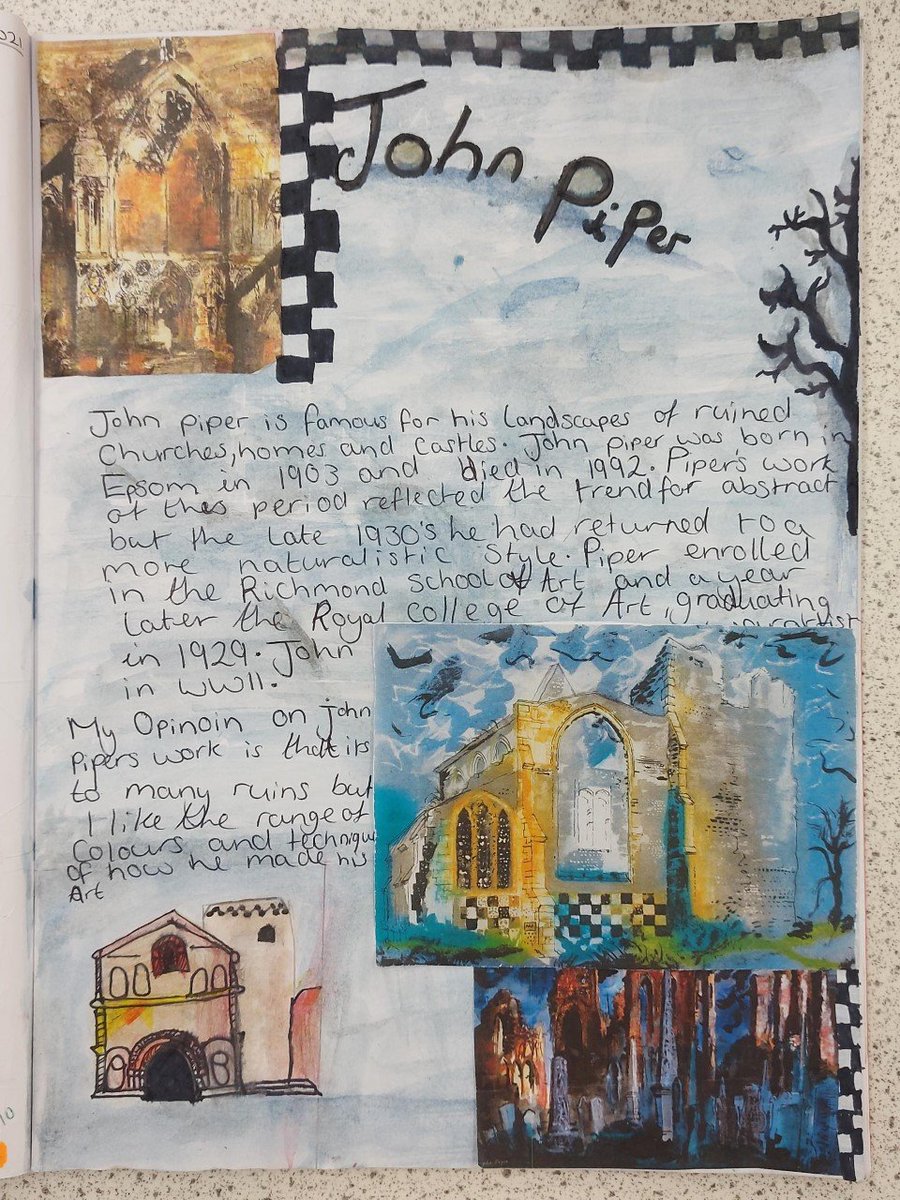 2021
John Piper
John piper is famous for his Landscapes of ruined
Churches, homes and Castles. John piper was born in
Epsom in 1903 and died in 1992. Piper's work
at this period reflected the trend for abstract
but the late 1930's he had returned to a
more naturalistic style. Piper enrolled
in the Richmond School of Art and a year
later the Royal college of Art, graduating
in 1929. John
in WWII.
My Opinoin on John
Pipers work is that its
to many ruins but
I like the range of
Colours and technique
of how he made his
Art
10